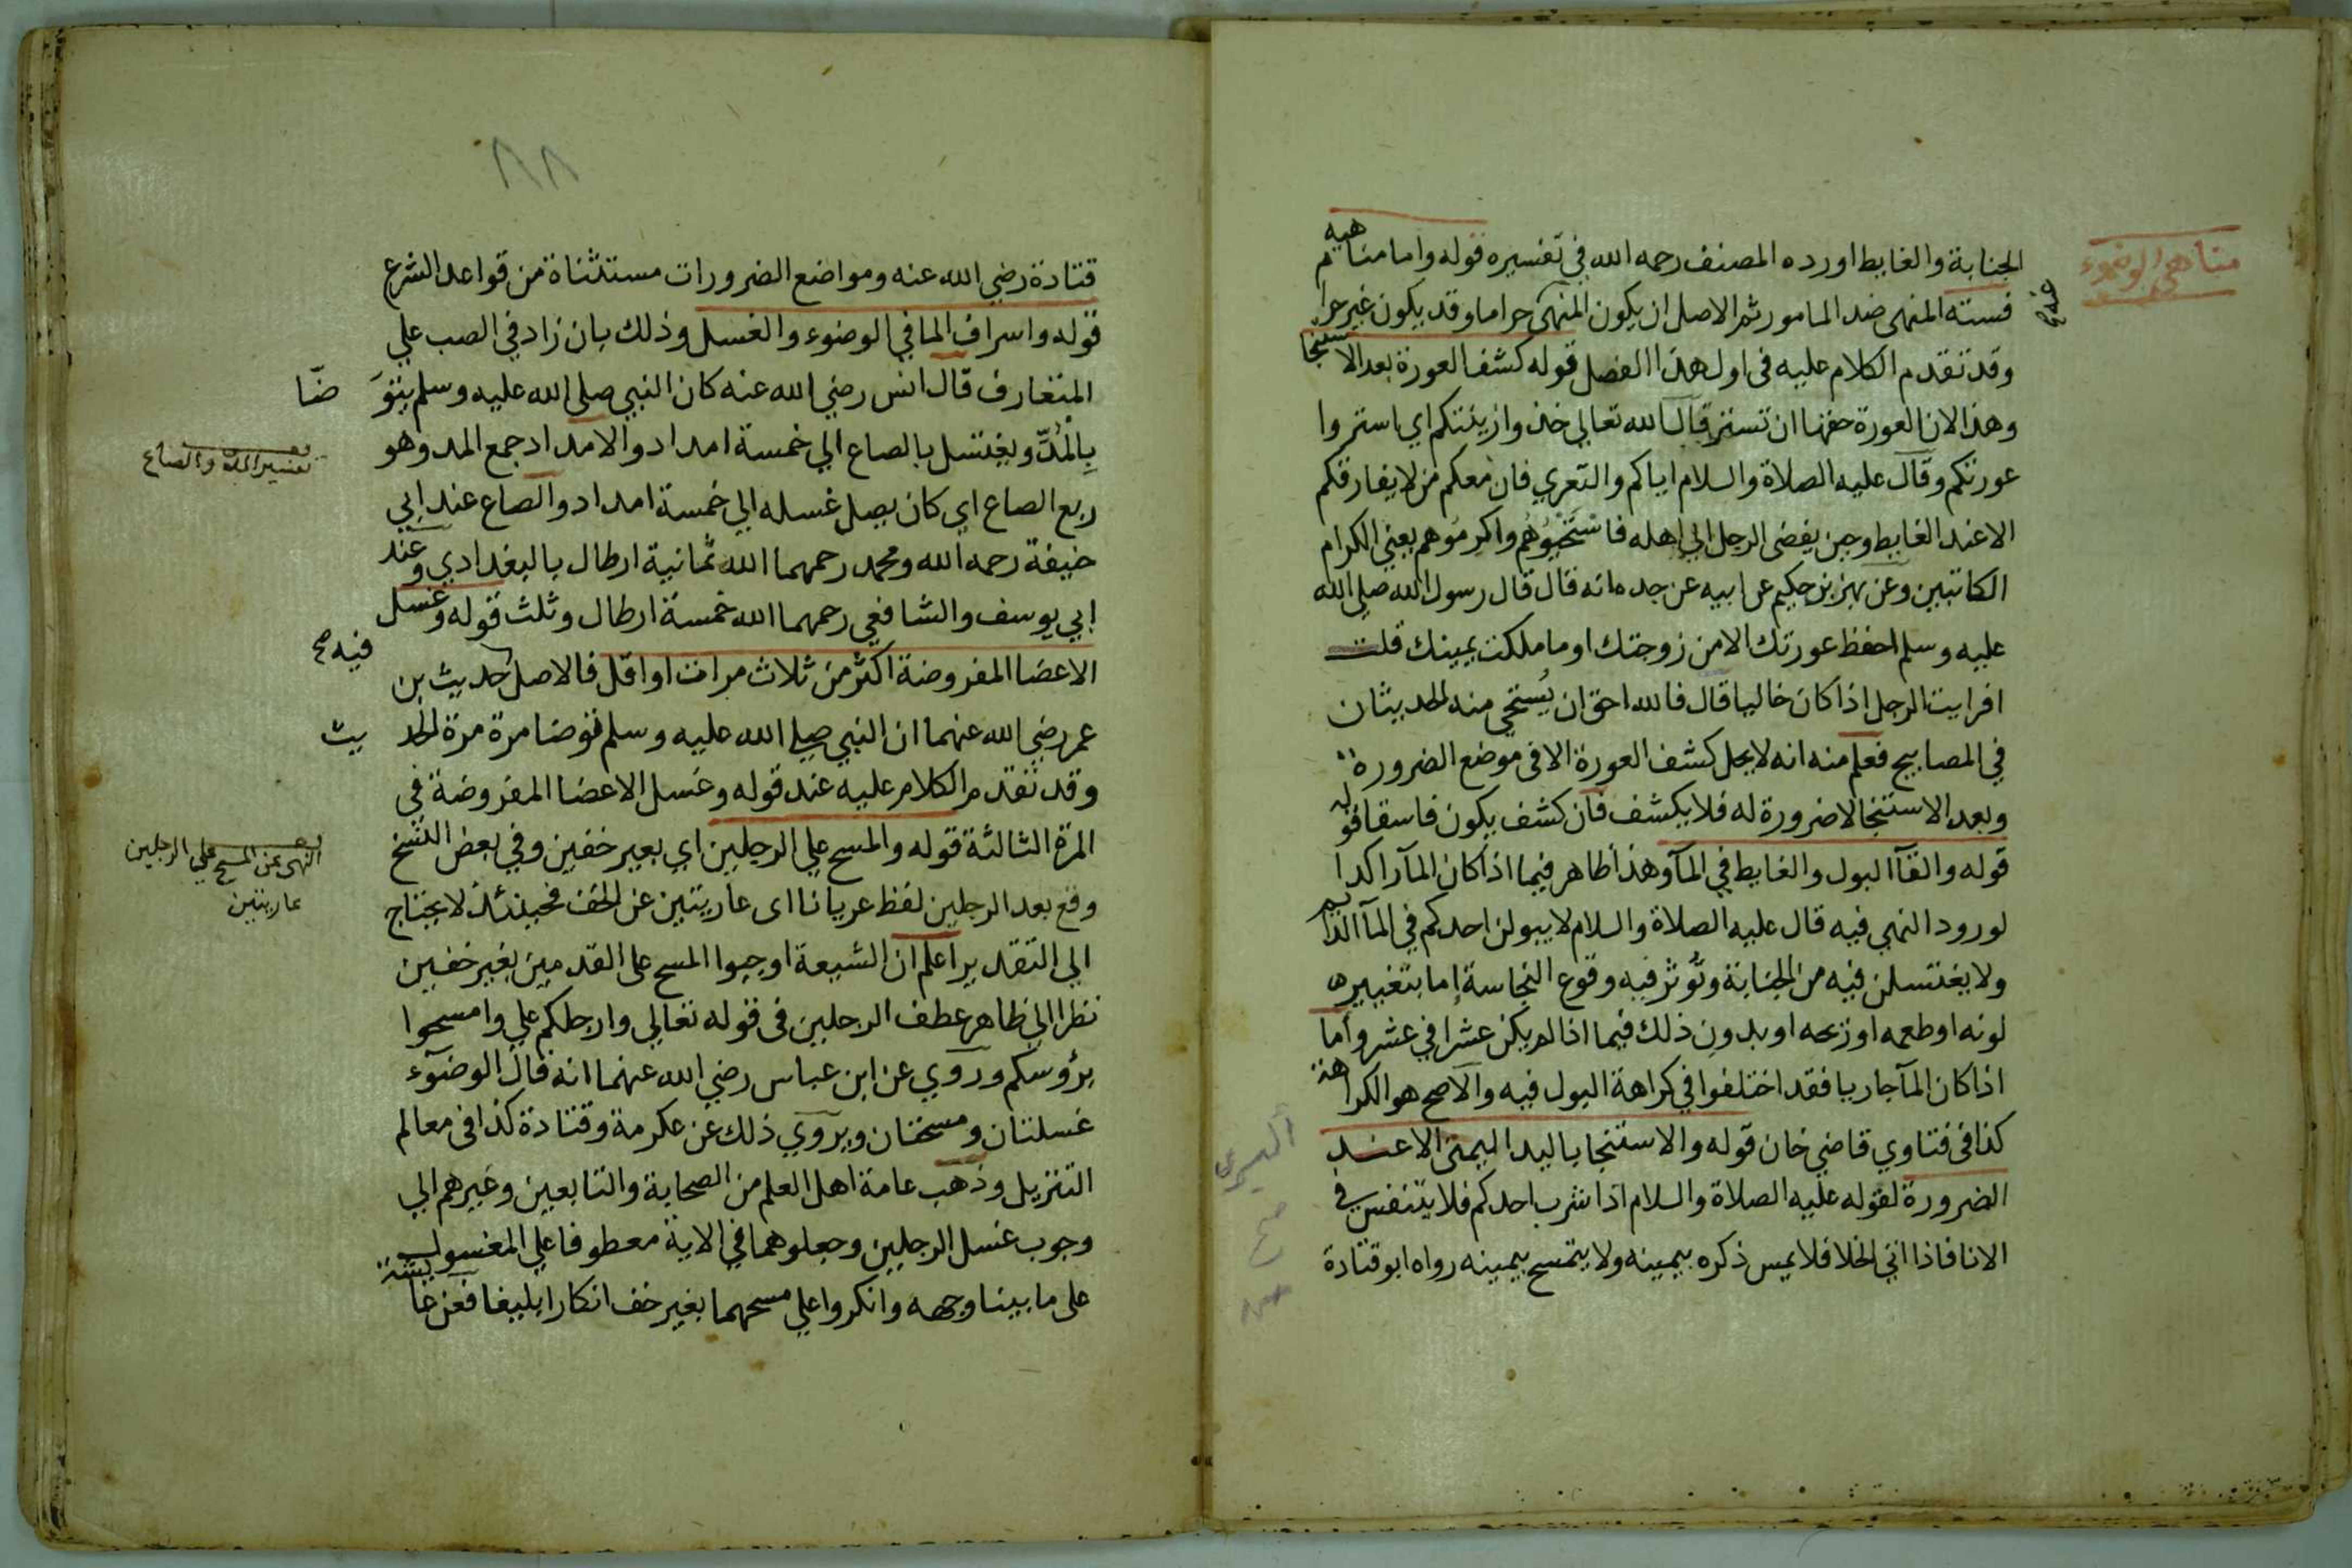 مناهي الوضوء
الجنابة والغايط اورده المصنف رحمه الله في تفسيره قوله واما مناهيه
فستة المنهى ضد المامور ثم الاصل ان يكون المنهى حراما وقد يكون غير حرام
وقد تقدم الكلام عليه فى اول هذا الفصل قوله كشف العورة بعد الاستنجا
وهذا لان العورة حقها ان تستر قال الله تعالي خذوا زينتكم اي استروا
عورتكم وقال عليه الصلاة والسلام اياكم والتعري فان معكم من لا يفارقكم
الا عند الغايط وحين يفضى الرجل الي اهله فاستحيوهم واكرموهم يعني الكرام
الكاتبين وعن بهز بن حكيم عن ابيه عن جده انه قال قال رسول الله صلي الله
عليه وسلم احفظ عورتك الا من زوجتك او ما ملكت يمينك قلت
افرايت الرجل اذا كان خاليا قال فالله احق ان يُستحي منه الحديثان
في المصابيح فعلم منه انه لا يحل كشف العورة الا فى موضع الضرورة
وبعد الاستنجا لا ضرورة له فلا يكشف فان كشف يكون فاسقا قوله
قوله والقآ البول والغايط في المآ وهذا ظاهر فيما اذا كان المآ راكدا
لورود النهى فيه قال عليه الصلاة والسلام لا يبولن احدكم في المآ الدايم
ولا يغتسلن فيه من الجنابة وتؤثر فيه وقوع النجاسة إما بتغييره
لونه او طعمه او ريحه او بدون ذلك فيما اذا لم يكن عشرا في عشر وأما
اذا كان المآ جاريا فقد اختلفوا في كراهة البول فيه والاصح هو الكراهة
كذا فى فتاوي قاضي خان قوله والاستنجا باليد اليمنى الا عند
اليسرى صح
الضرورة لقوله عليه الصلاة والسلام اذا شرب احدكم فلا يتنفس في
الانا فاذا اتي الخلا فلا يمس ذكره بيمينه ولا يتمسح بيمينه رواه ابو قتادة
٨٨
قتادة رضي الله عنه ومواضع الضرورات مستثناة من قواعد الشرع
قوله واسراف الما في الوضوء والغسل وذلك بان زاد في الصب علي
المتعارف قال انس رضي الله عنه كان النبي صلي الله عليه وسلم يتوَضّا
بِالْمُدّ ويغتسل بالصاع الي خمسة امداد والامداد جمع المد وهو
تفسير المد والصاع
ربع الصاع اي كان يصل غسله الي خمسة امداد والصاع عند ابي
حنيفة رحمه الله ومحمد رحمهما الله ثمانية ارطال بالبغدادي وعند
ابي يوسف والشافعي رحمهما الله خمسة ارطال وثلث قوله وغسل
الاعضا المفروضة اكثر من ثلاث مرات او اقل فالاصل حديث بن
فيه صح
عمر رضي الله عنهما ان النبي صلي الله عليه وسلم توضا مرة مرة الحديث
وقد تقدم الكلام عليه عند قوله وغسل الاعضا المفروضة في
المرة الثالثة قوله والمسح علي الرجلين اي بغير خفين وفي بعض النسخ
النهى عن المسح علي الرجلين
عاريتين
وقع بعد الرجلين لفظ عريانا اى عاريتين عن الخف فحينئذ لا يحتاج
الي التقدير اعلم ان الشيعة اوجبوا المسح على القدمين بغير خفين
نظرا الي ظاهر عطف الرجلين فى قوله تعالي وارجلكم علي وامسحوا
برؤسكم وروي عن ابن عباس رضي الله عنهما انه قال الوضوء
غسلتان ومسحتان ويروي ذلك عن عكرمة وقتادة كذا فى معالم
التنزيل وذهب عامة اهل العلم من الصحابة والتابعين وغيرهم الي
وجوب غسل الرجلين وجعلوهما في الاية معطوفا علي المغسول
على ما بينا وجهه وانكروا علي مسحهما بغير خف انكارا بليغا فعن عايشة